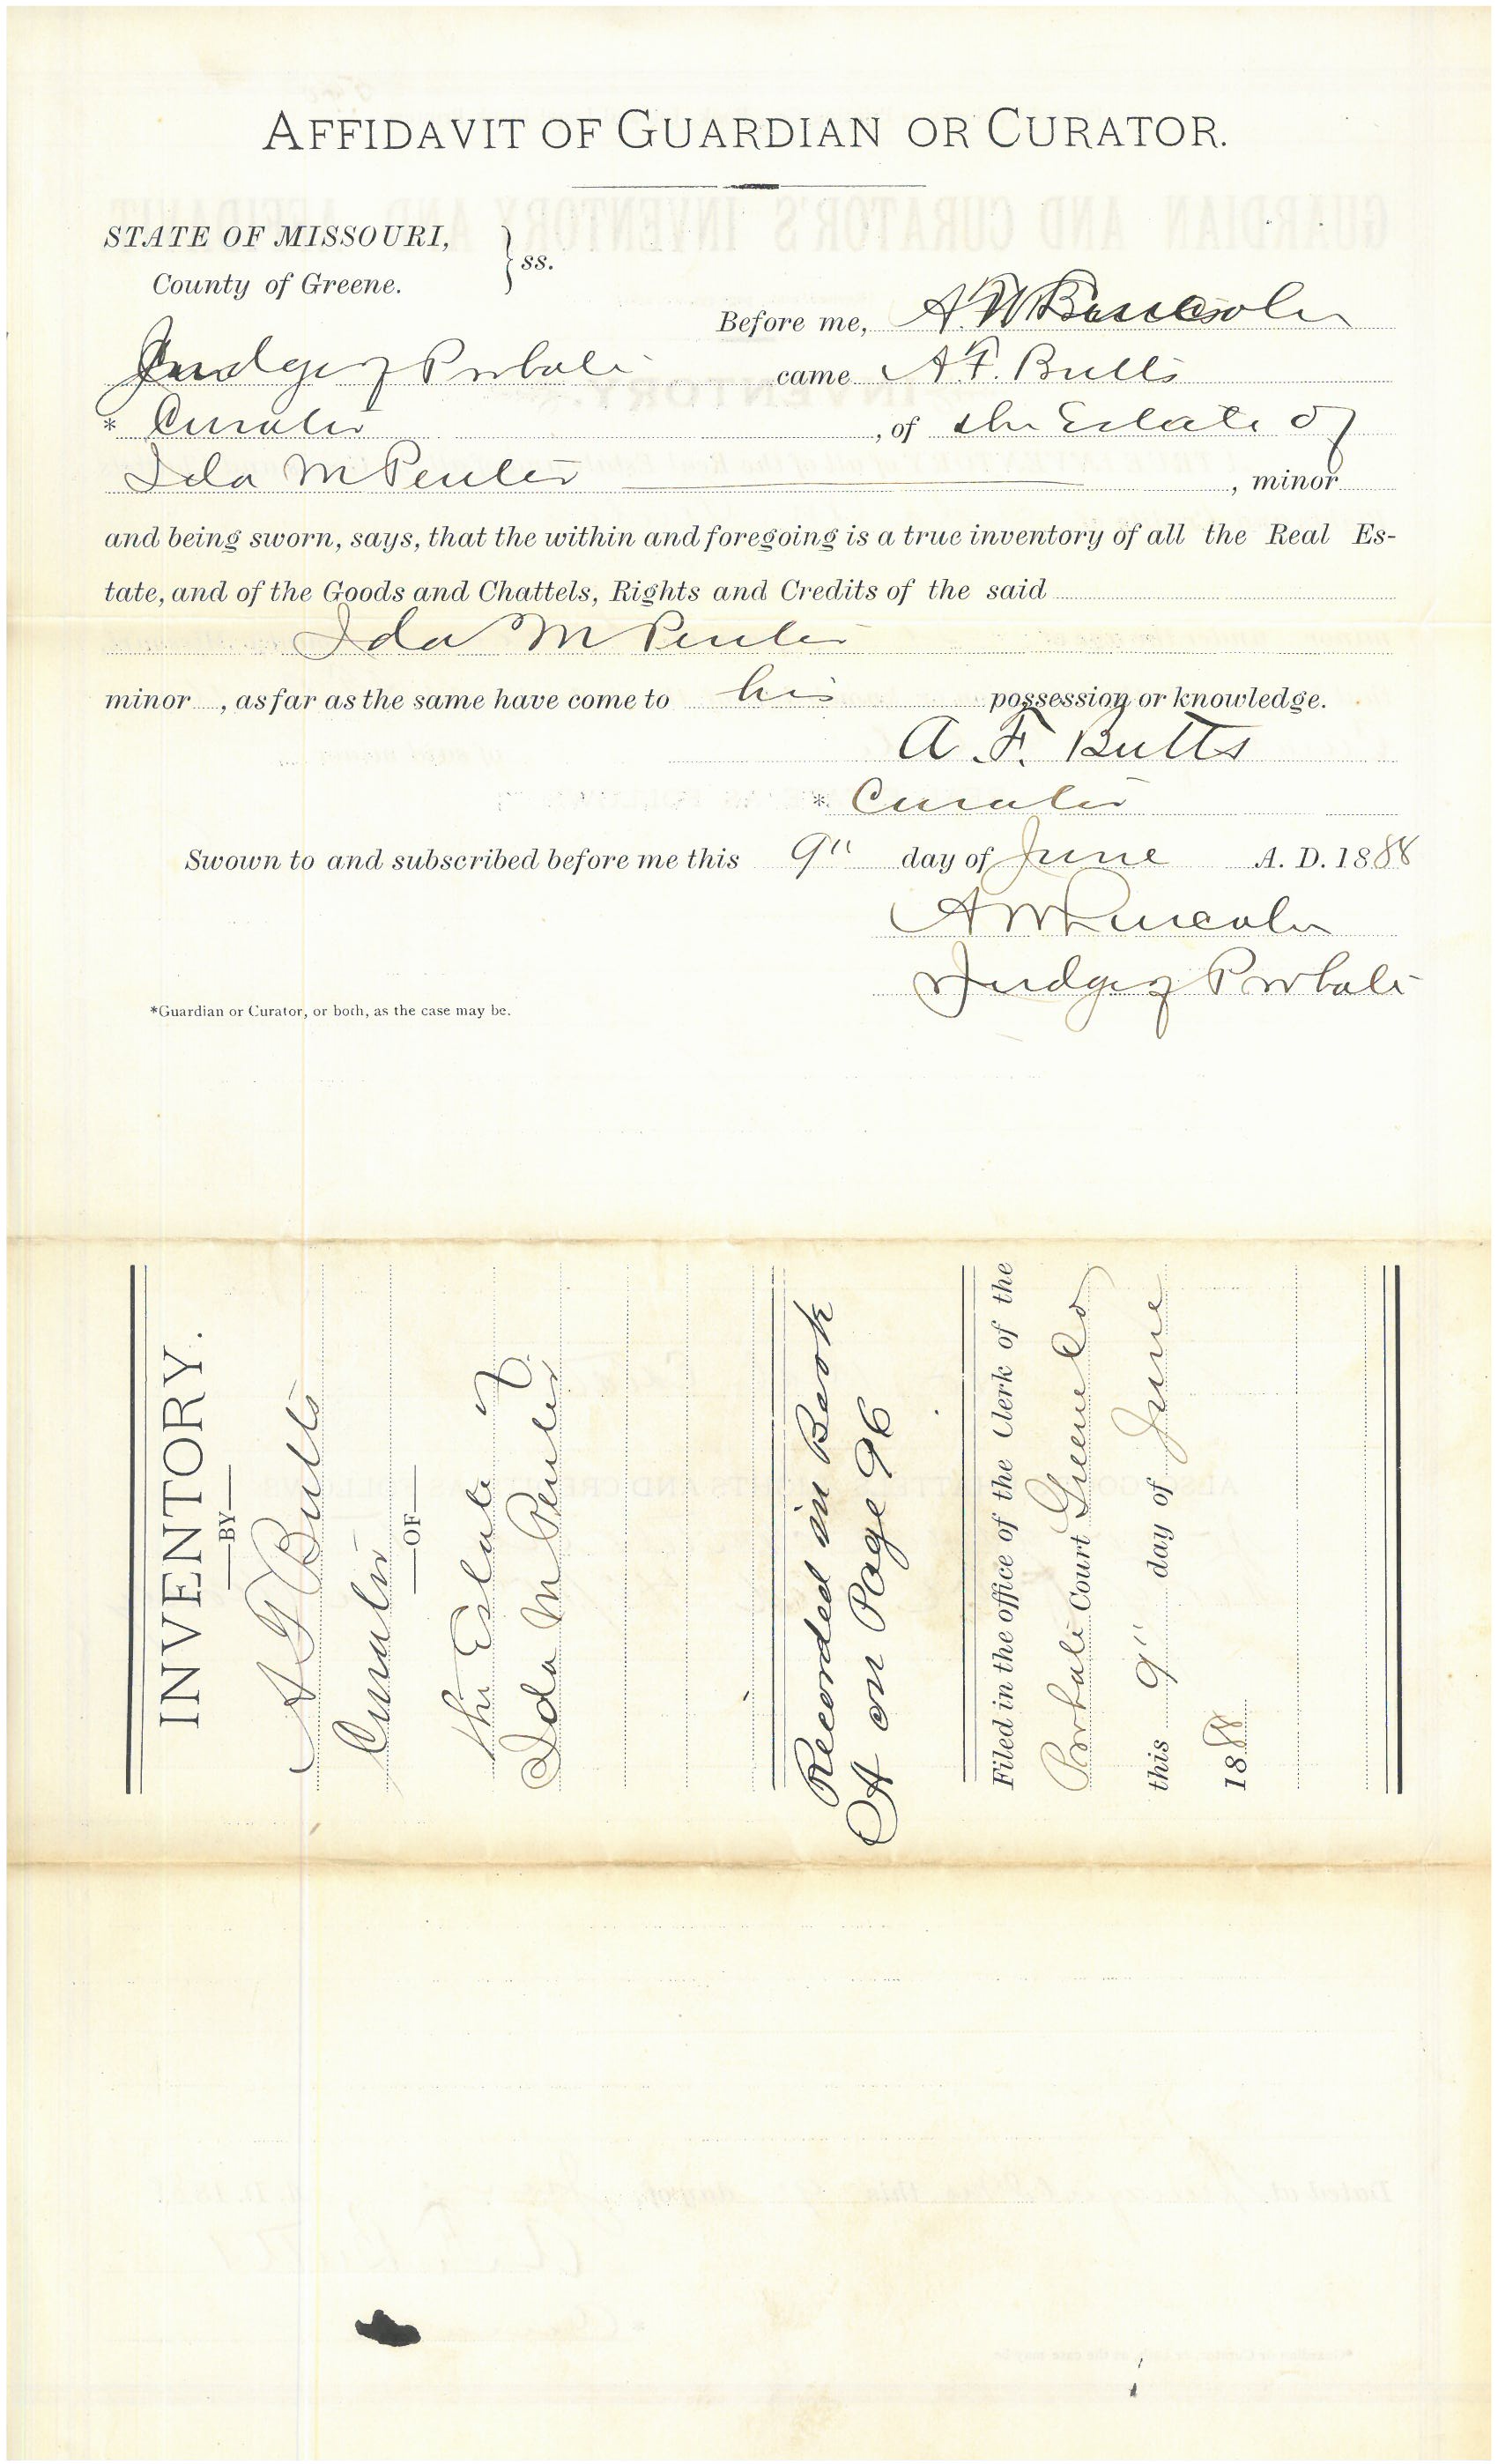 AFFIDAVIT OF GUARDIAN OR CURATOR.
STATE OF MISSOURI,
County of Greene.
} ss.
Before me, A. W Lincoln
Judge of Probate came A. F. Butts
* Curator , of the Estate of
Ida M Penter , minor
and being sworn, says, that the within and foregoing is a true inventory of all the Real Es-
tate, and of the Goods and Chattels, Rights and Credits of the said
Ida M Penter
minor , as far as the same have come to his possession or knowledge.
A. F. Butts
* Curator
Swown to and subscribed before me this 9" day of June A. D. 1888
A W Lincoln
Judge of Probate
*Guardian or Curator, or both, as the case may be.
INVENTORY.
—BY—
A F Butts
Curator
—OF—
the Estate of
Ida M Penter
Recorded in Book
A on Page 96
Filed in the office of the Clerk of the
Probate Court Greene Co
this 9" day of June
1888